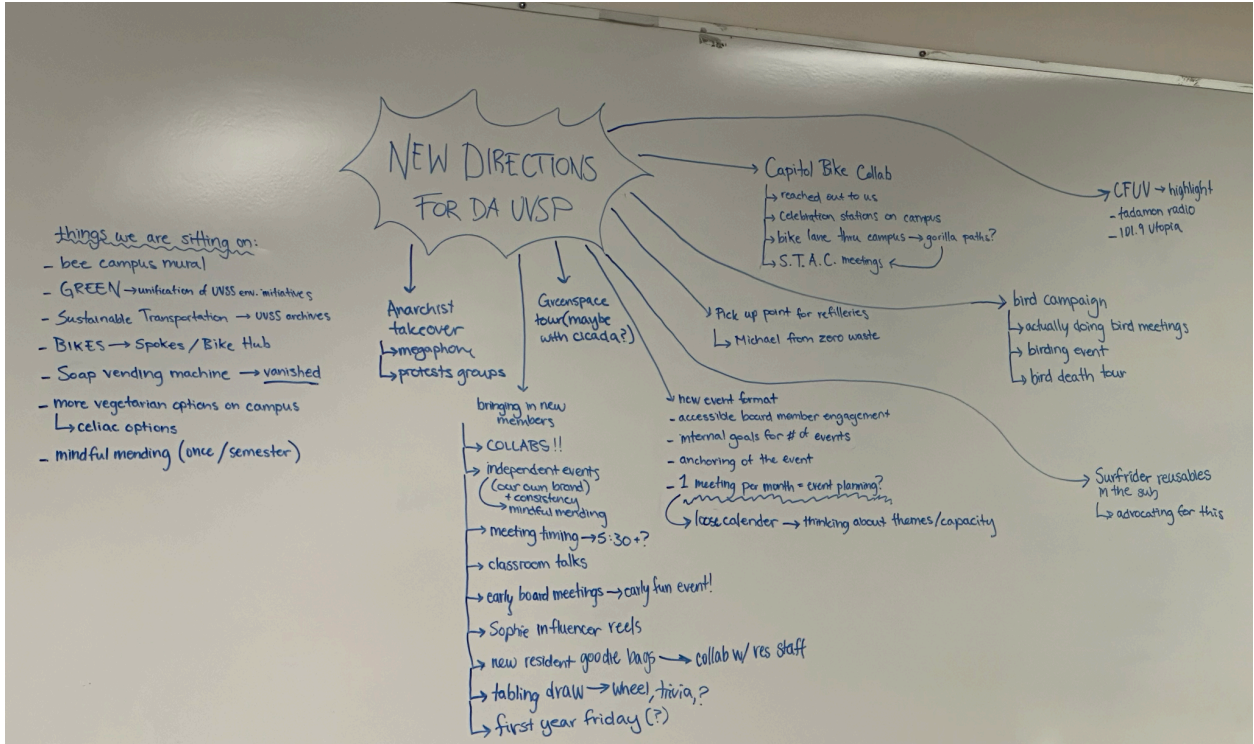 NEW DIRECTIONS
FOR DA UVSP
things we are sitting on:
- bee campus mural
- GREEN → unification of UVSS env. initiatives
- Sustainable Transportation → UVSS archives
- BIKES → Spokes / Bike Hub
- Soap vending machine → vanished
- more vegetarian options on campus
↳ celiac options
- mindful mending (once / semester)
Anarchist
takeover
↳ megaphone
↳ protests groups
bringing in new
members
→ COLLABS!!
→ independent events
(our own brand)
+ consistency
→ mindful mending
→ meeting timing → 5:30+?
→ classroom talks
→ early board meetings → early fun event!
→ Sophie influencer reels
→ new resident goodie bags → collab w/ res staff
→ tabling draw → wheel, trivia, ?
→ first year friday (?)
Greenspace
tour (maybe
with cicada?)
new event format
- accessible board member engagement
- internal goals for # of events
- anchoring of the event
- 1 meeting per month = event planning?
→ loose calender → thinking about themes/capacity
Pick up point for refilleries
↳ Michael from zero waste
Capitol Bike Collab
→ reached out to us
→ celebration stations on campus
→ bike lane thru campus → gorilla paths?
→ S.T.A.C. meetings
CFUV → highlight
- tadamon radio
- 101.9 Utopia
bird campaign
→ actually doing bird meetings
→ birding event
→ bird death tour
Surfrider reusables
in the sub
↳ advocating for this